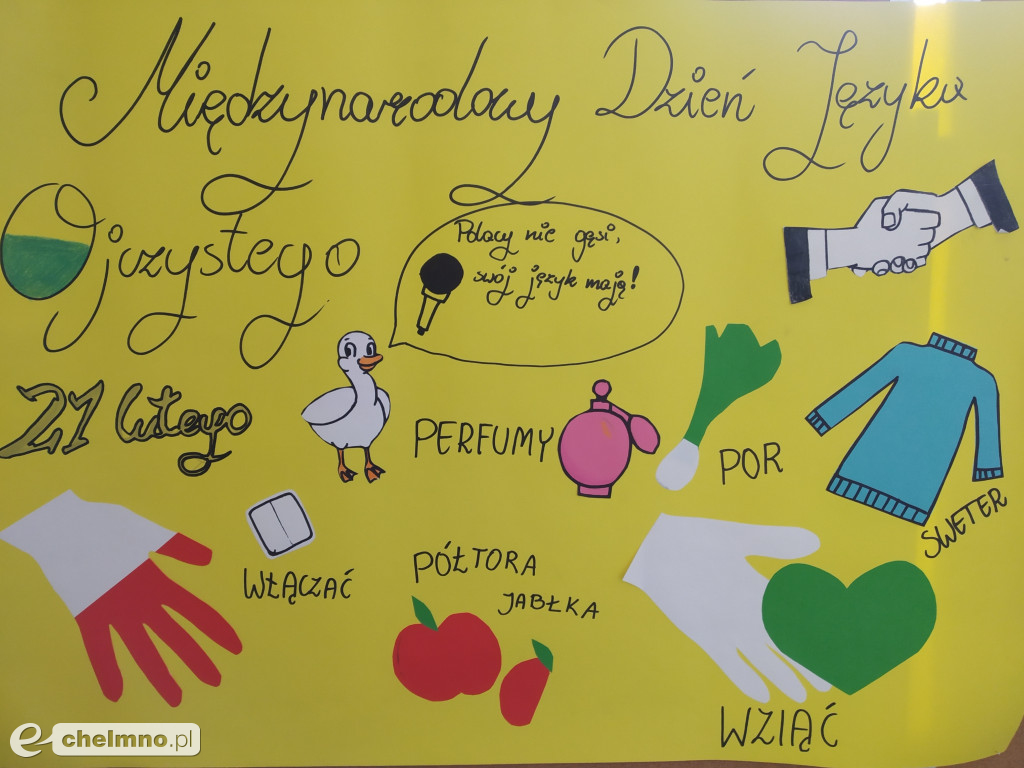 Międzynarodowy Dzień Języka
Ojczystego
Polacy nie gęsi,
swój język mają!
21 lutego
PERFUMY
POR
SWETER
WŁĄCZAĆ
PÓŁTORA
JABŁKA
WZIĄĆ
e-chelmno.pl